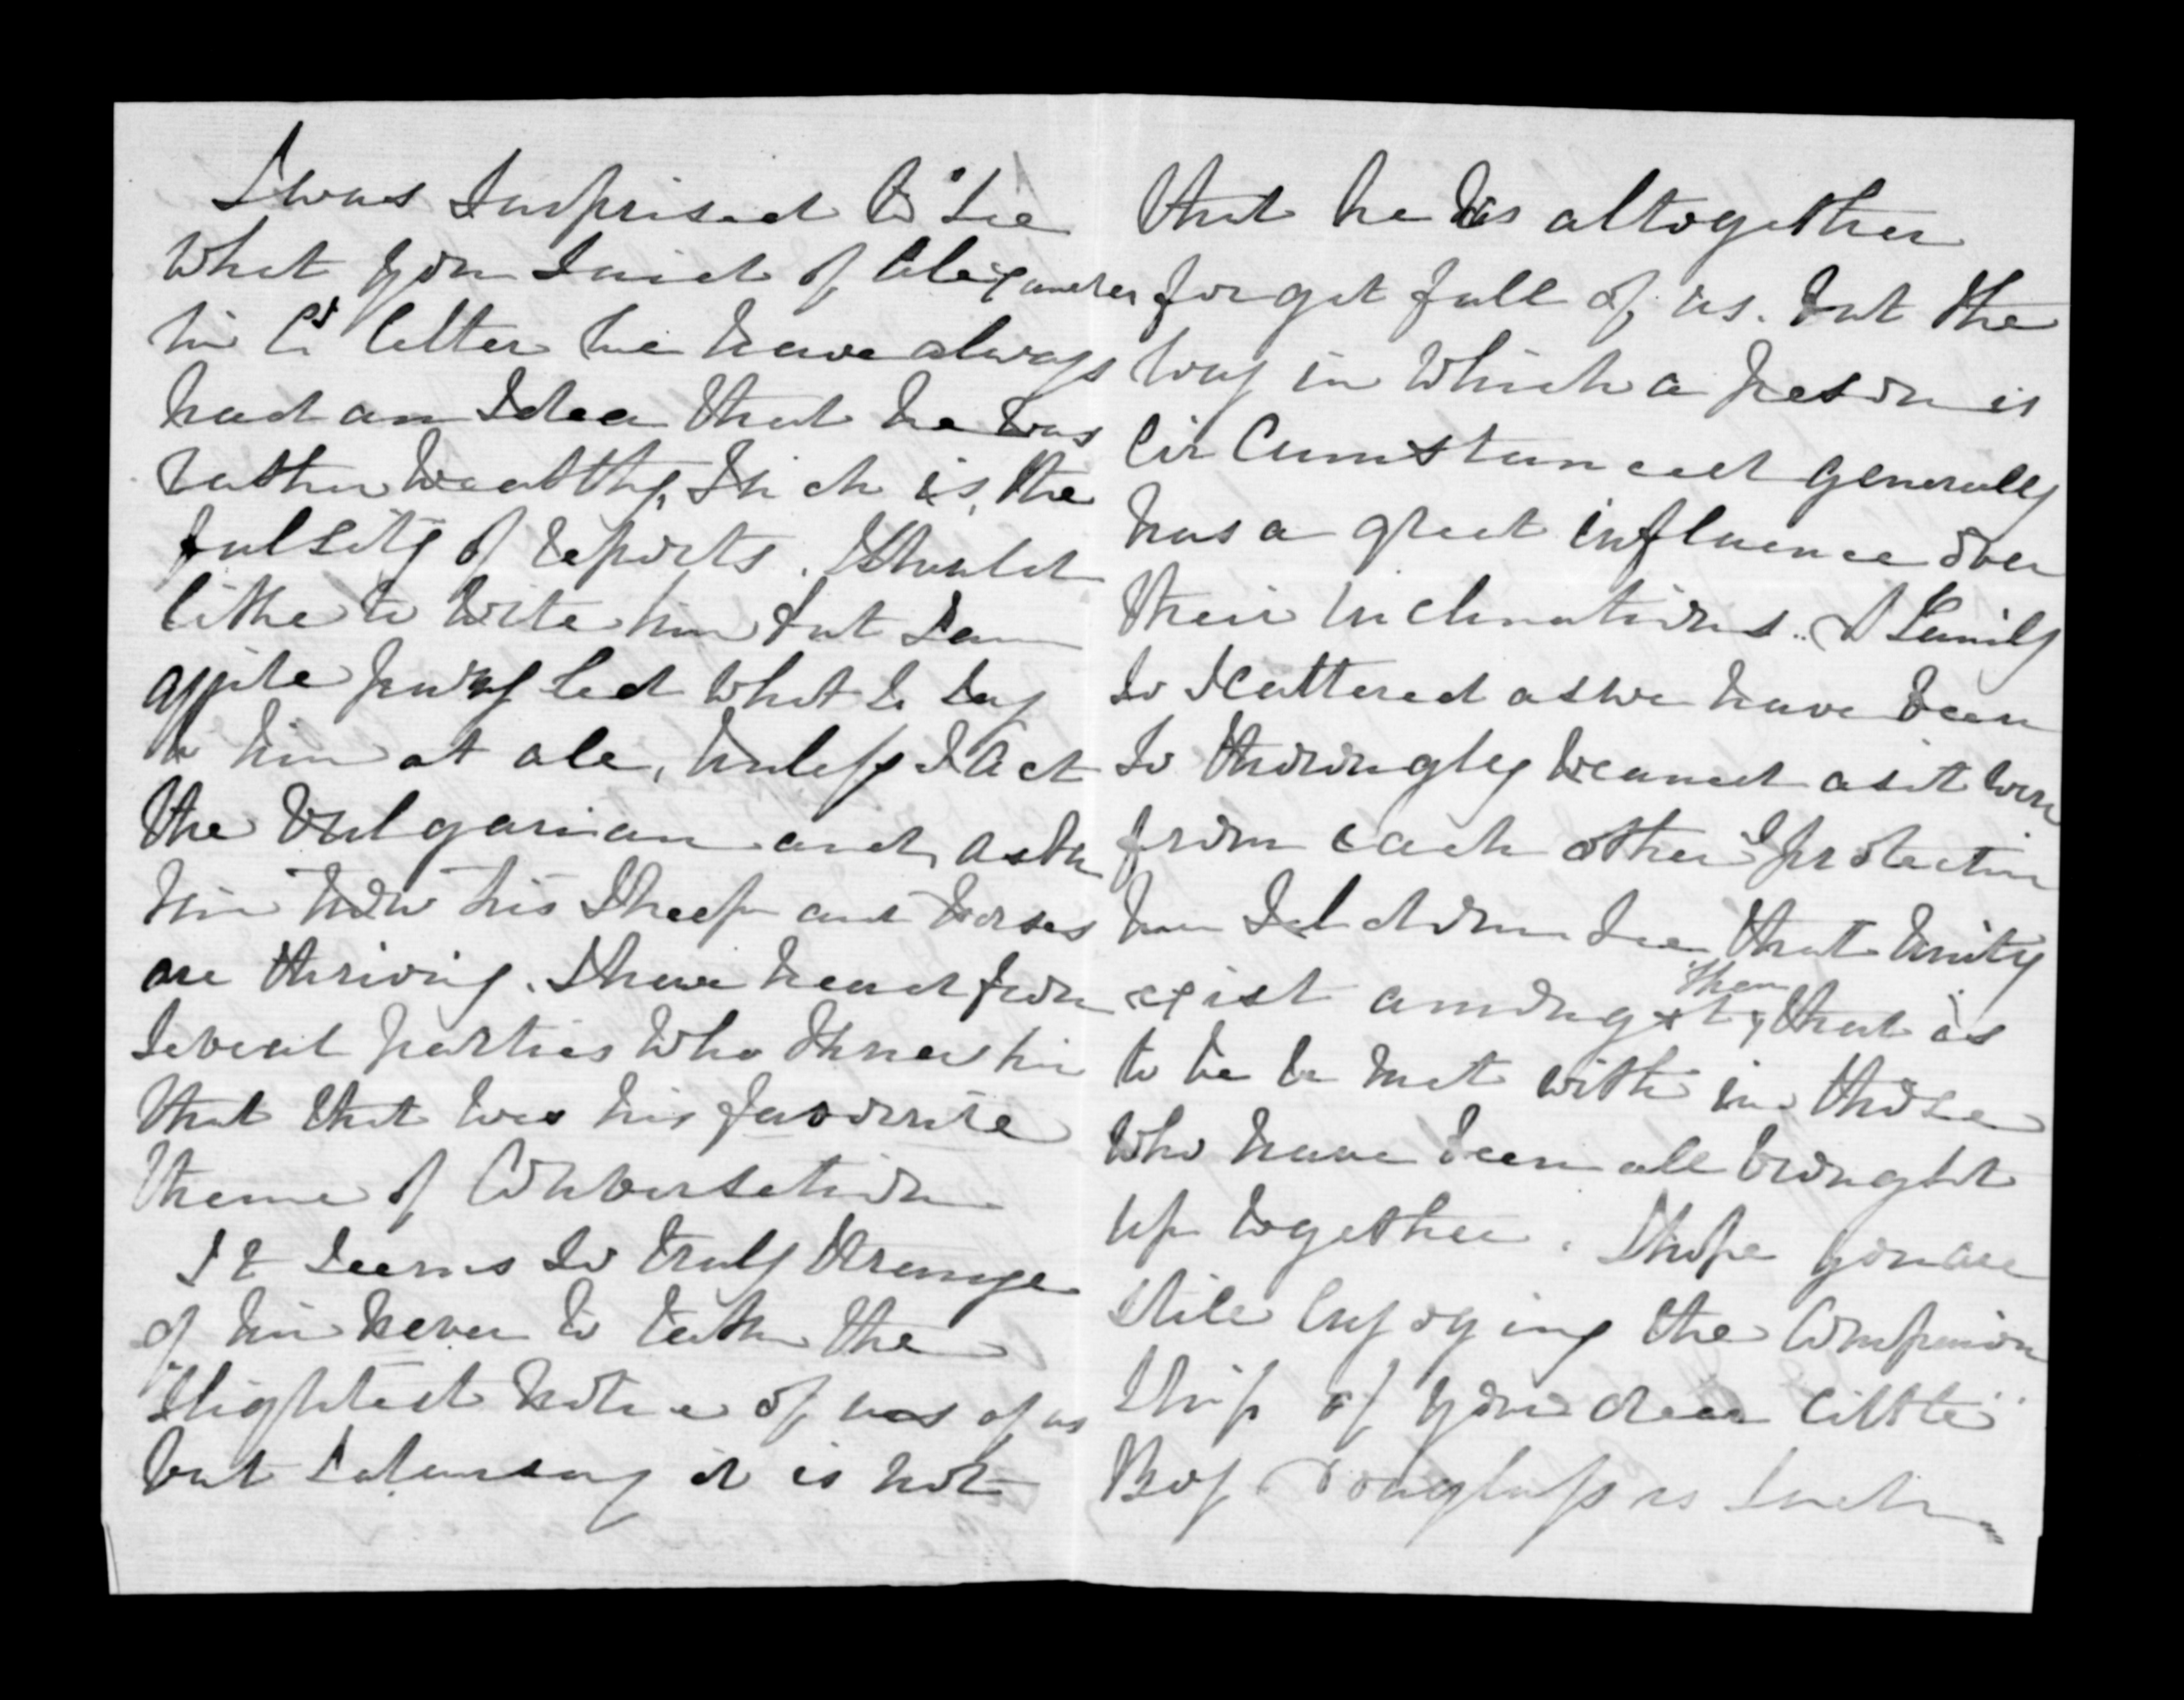 I was surprised to see
what you said of Alexander
in Cs letter we have always
had an Idea that he was
rather wealthy, Such is, the
falsity of reports. I should
like to write him but I am
qquite puzzled what to say
to him at all, unless I act
the Vulgarian and, ask
him how his Sheep and horses
are thriving. I have heard from
several parties who knew him
that that was his favourite
theme of Conversation
It seems so truly strange
of him never to take the
slightest notice of us of us
but I daresay it is not
that he is altogether
forget full of us. but the
way in which a person is
Cir Cumstanced generally
has a great influence over
their inclinations. A Family
so scattered as we have been
so thoroughly weaned as it were
from each other &
seldom see, that unity
exist amongst them, that is
to be be met with in those
who have been all brought
up together. I hope you are
still Enjoying the Companion
ship of your dear little
Boy Douglass is such